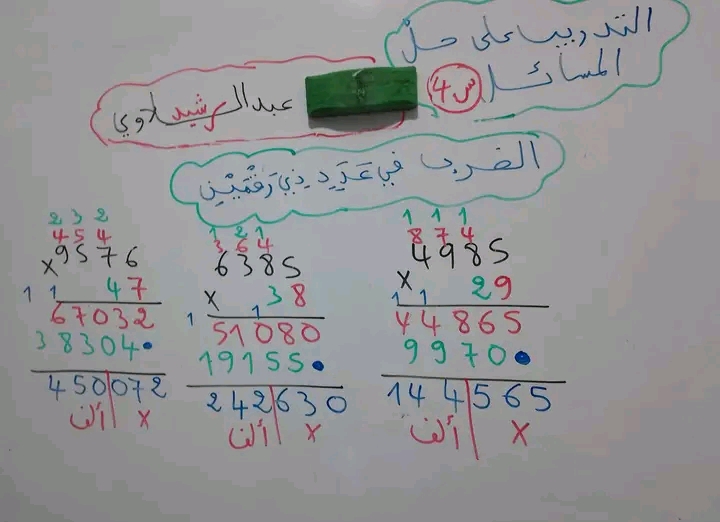 التدريب على حل
المسائل
س4
عبد الرشيد
الضرب في عدد ذي رقمين
2 3 2
4 5 4
9576
× 47
1 1
67032
38304•
450072
ألف ×
1 2 1
3 6 4
6385
× 38
1 1
51080
19155•
242630
ألف ×
1 1 1
8 7 4
4985
× 29
1 1
44865
9970•
144565
ألف ×